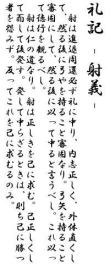 礼記
-射義-
射は進退周還必ず礼に中り、内志正しく、外体直くし
て、然る後に弓矢を持ること審固なり。弓矢を持ること審固にし
て、然る後に以って中ると言うべし。これ以っ
て徳行を観るべし。
射は仁の道なり。射は正しきを己に求む。己正しくし
て而して後発す。発して中らざるときは、則ち己に勝つ
者を怨みず。反ってこれを己に求むるのみ。